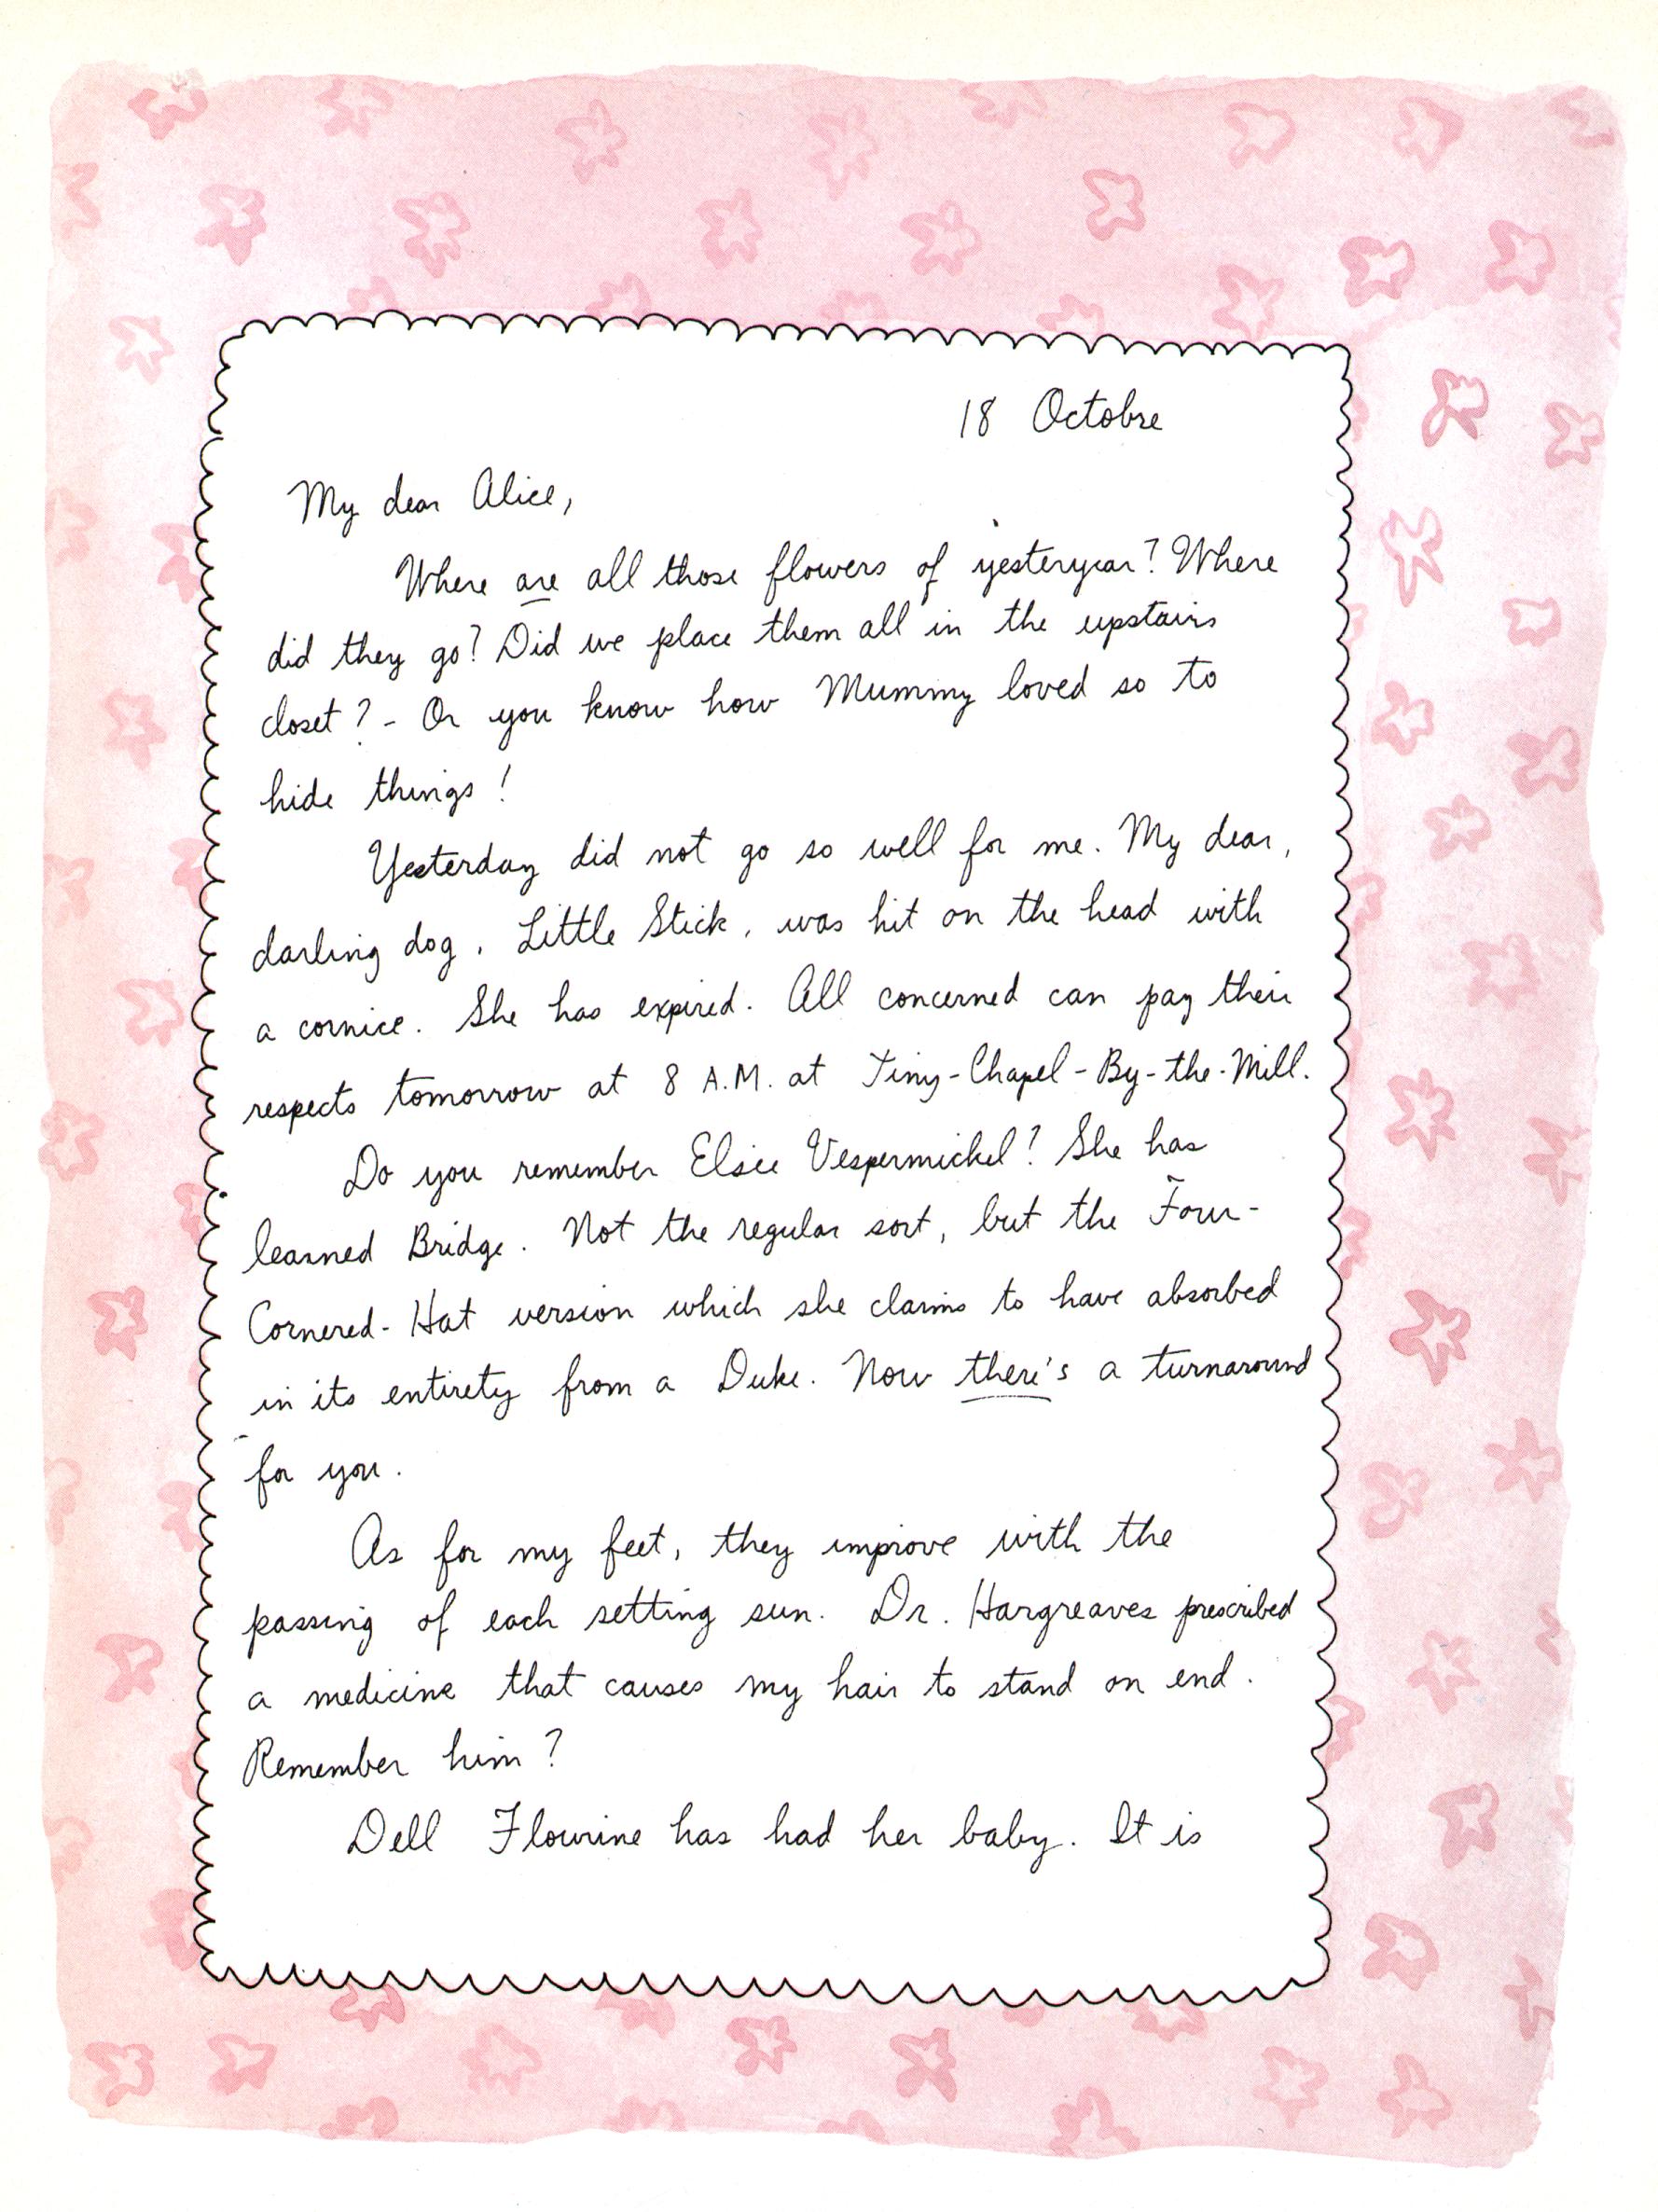 18 Octobre
My dear Alice,
Where are all those flowers of yesteryear? Where
did they go? Did we place them all in the upstairs
closet? - Or you know how Mummy loved so to
hide things!
Yesterday did not go so well for me. My dear,
darling dog, Little Stick, was hit on the head with
a cornice. She has expired. All concerned can pay their
respects tomorrow at 8 A.M. at Tiny-Chapel-By-the-Mill.
Do you remember Elsie Vespermickel? She has
learned Bridge. Not the regular sort, but the Four-
Cornered-Hat version which she claims to have absorbed
in its entirety from a Duke. Now there's a turnaround
for you.
As for my feet, they improve with the
passing of each setting sun. Dr. Hargreaves prescribed
a medicine that causes my hair to stand on end.
Remember him?
Dell Flourine has had her baby. It is